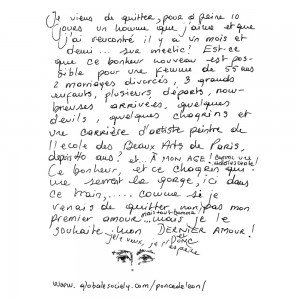 Je viens de quitter, pour à peine 10
jours un homme que j'aime et que
j'ai rencontré il y a un mois et
demi... sur meetic! Est-ce
que ce bonheur nouveau est pos-
sible pour une femme de 55 ans
2 marriages divorcés, 3 grands
enfants, plusieurs, départs, nom-
breuses arrivées, quelques
deuils, quelques chagrins et
une carrière d'artiste peintre de
l'école des Beaux Arts de Paris,
depuis 40 ans? et... À MON AGE! comme une adolescente!
Ce bonheur, et ce chagrin qui
me serrent la gorge, ici dans
ce train,..... comme si je
venais de quitter, non, pas mon
premier amour... mais tout comme mais je le
souhaite mon DERNIER AMOUR!
je le veux, je l'espère et DONC
www.globalsociety.com/poncedeleon/